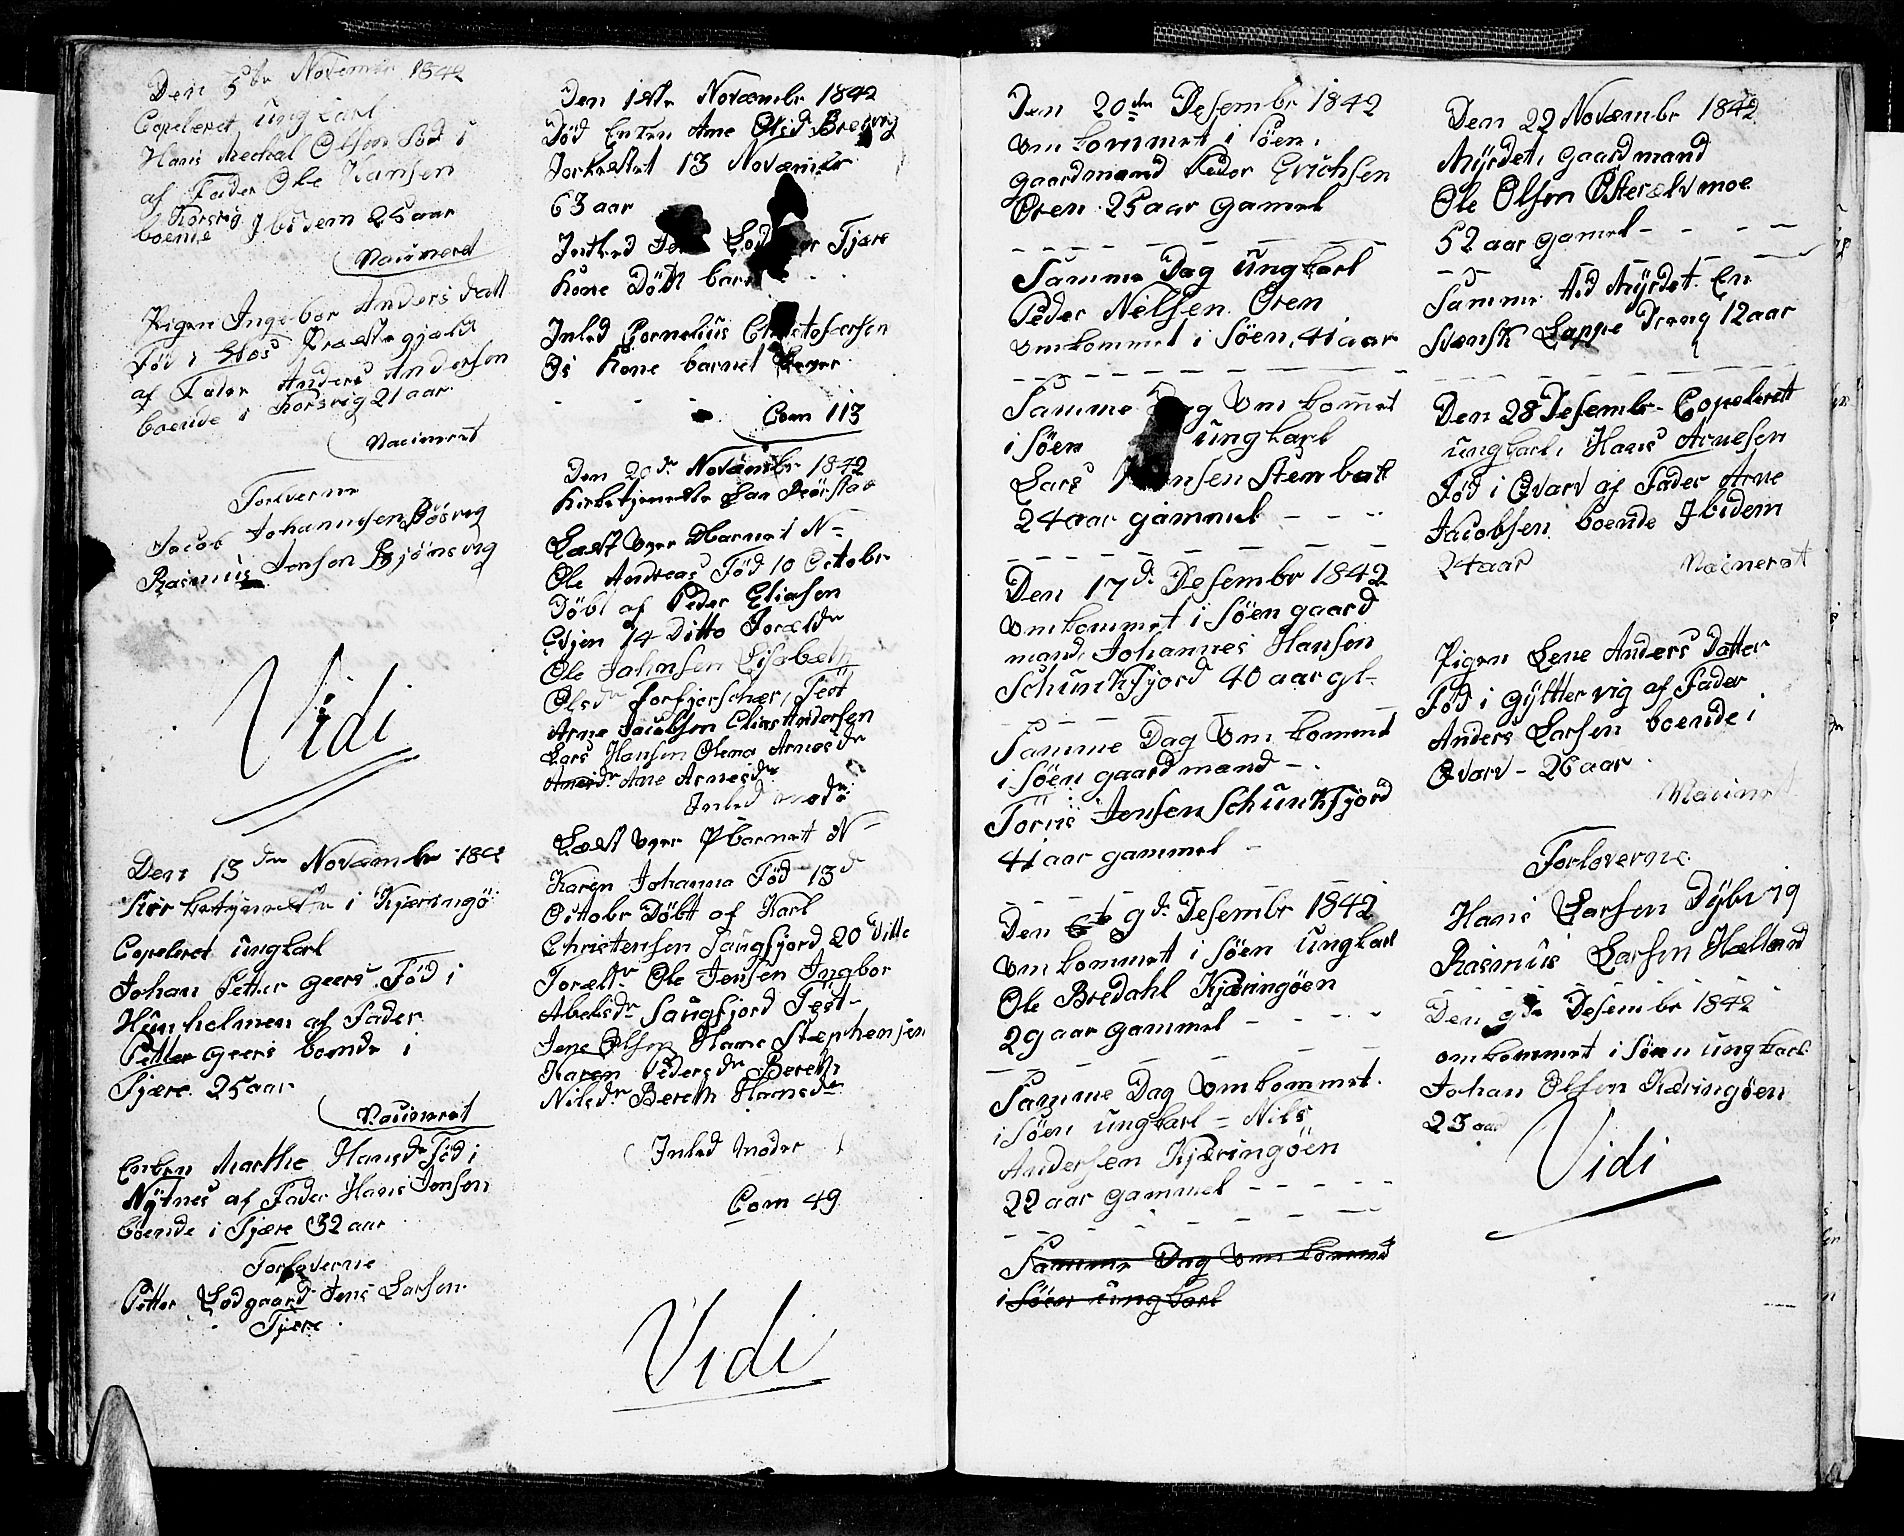 Den 5te Novembr 1842
Copeleret ungkarl
Hans Mechal Olsen Fød i
af Fader Ole Hansen
Korsvig
boende Ibidem 25 aar
Vacineret
Pigen Ingebor Andersdatt
Fød i Præstegjæld
af Fader Anders Andersen
boende i Korsvig 21 aar
Vacineret
Forloverne
Jacob Johannesen Bösvig
Rasmus Jensen Bjönsvig
Vidi
Den 13de Novæmbr 1842
Kirketjeneste i Kjæringö
Copeleret ungkarl
Johan Petter geers Fød i
Hunholmen af Fader
Petter geers boende i
Fjære 25 aar
Vacineret
Enken Marthe Hansdr Fød i
Nytnes af Fader Hans Jensen
boende i Fjære 32 aar
Forloverne
Petter Lodgaard Jens Larsen
Fjære
Den 1ste Novæmbr 1842
Död Enken Ane Olsdr Bredvig
Jorfæstet 13 Novæmbr
63 aar
Inled Fjære
Kone Döth barn
Inled Cornelius Christofersen
Os Kone barnet lever
Com 113
Den 20de Novæmbr 1842
Kirketjeneste
Læst over Dbarnet N-
Ole Andreas Fød 10 Octobr
Döbt af Peder Eliasen
Evjen 14 Ditto Forældr
Ole Johnsen Elisabeth
Olsdr Forfjerschær, Test
Arne Jacobsen Elias Andersen
Lars Hansen Olena Arnesdr
Arnesdr Ane Arnesdr
Inled Modr
Læst over Pbarnet N-
Karen Johanna Fød 13d
Octobr Döbt af Karl
Christensen Saugfjord 20 Ditto
Forældr Ole Jensen Ingbor
Abelsdr Saugfjord Test-
Jens Olsen Hans Stephensen
Karen Pedersdr Bereth
Nilsdr Bereth Hansdr
Inled Moder
Com 49
Vidi
Den 20de Desembr 1842
omkommet i Söen,
gaardmand Peder Erichsen
Øren 25 aar gamel
Samme Dag ungkarl
Peder Nelsen Øren
omkommet i Söen, 41 aar
Samme Dag omkommet
i Söen ungkarl
Lars Stembak
24 aar gammel
Den 17d Desembr 1842
omkommet i Söen gaard
mand, Johannes Hansen
Schunkfjord 40 aar gl-
Samme Dag omkomend
i Söen gaardmand -
Törris Jensen Schunkfjord
41 aar gammel -
Den 9d Desembr 1842
omkommet i Söen ungkarl
Ole Bredahl Kjæringöen
29 aar gammel
Samme Dag omkommet
i Söen ungkarl - Nils
Andersen Kjæringöen
22 aar gammel
Samme Dag omkommed
i Söen ungkarl
Den 22 Novæmbr 1842
Myrdet, gaardmand
Ole Olsen Østerelvmoe
52 aar gamel
Samme tid Myrdet En
Svensk Lappe Dreng 12 aar
Den 28 Desembr Copeleret
ungkarl, Hans Arnesen
Fød i Qvarv af Fader Arne
Jacobsen boende Ibidem
24 aar Vacineret
Pigen Lene Andersdatter
Fød i Gyltervig af Fader
Anders Larsen boende i
Qvarv - 26 aar
Vacineret
Forloverne
Hans Larsen Dybvig
Rasmus Larsen Hælland
Den 9de Desembr 1842
omkommet i Söen ungkarl
Johan Olsen Kæringöen
23 aar
Vidi